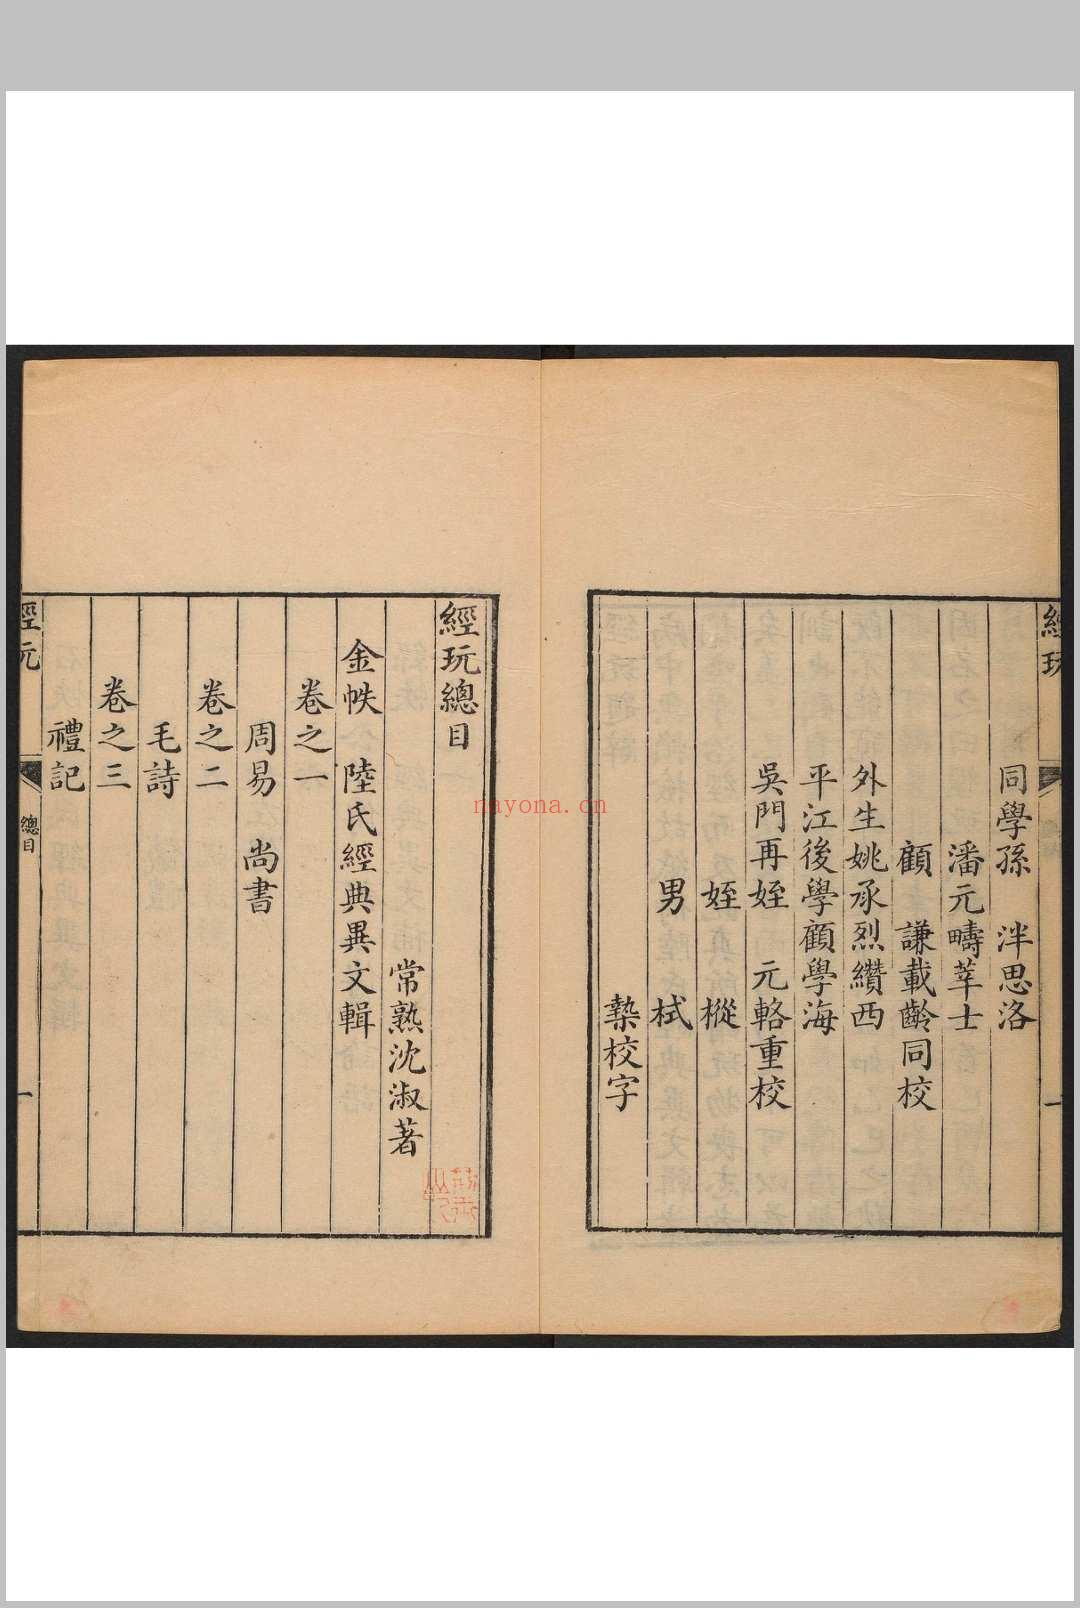 經玩
一
同學孫　泮思洛
潘元疇莘士
顧　謙載齡同校
外生姚承烈纘西
平江後學顧學海
吳門再姪　元輅重校
姪　樅
男　栻
槷校字
經玩總目
常熟沈淑著
金帙　陸氏經典異文輯
卷之一
周易　尚書
卷之二
毛詩
卷之三
禮記
經玩
總目
一
nayona.cn